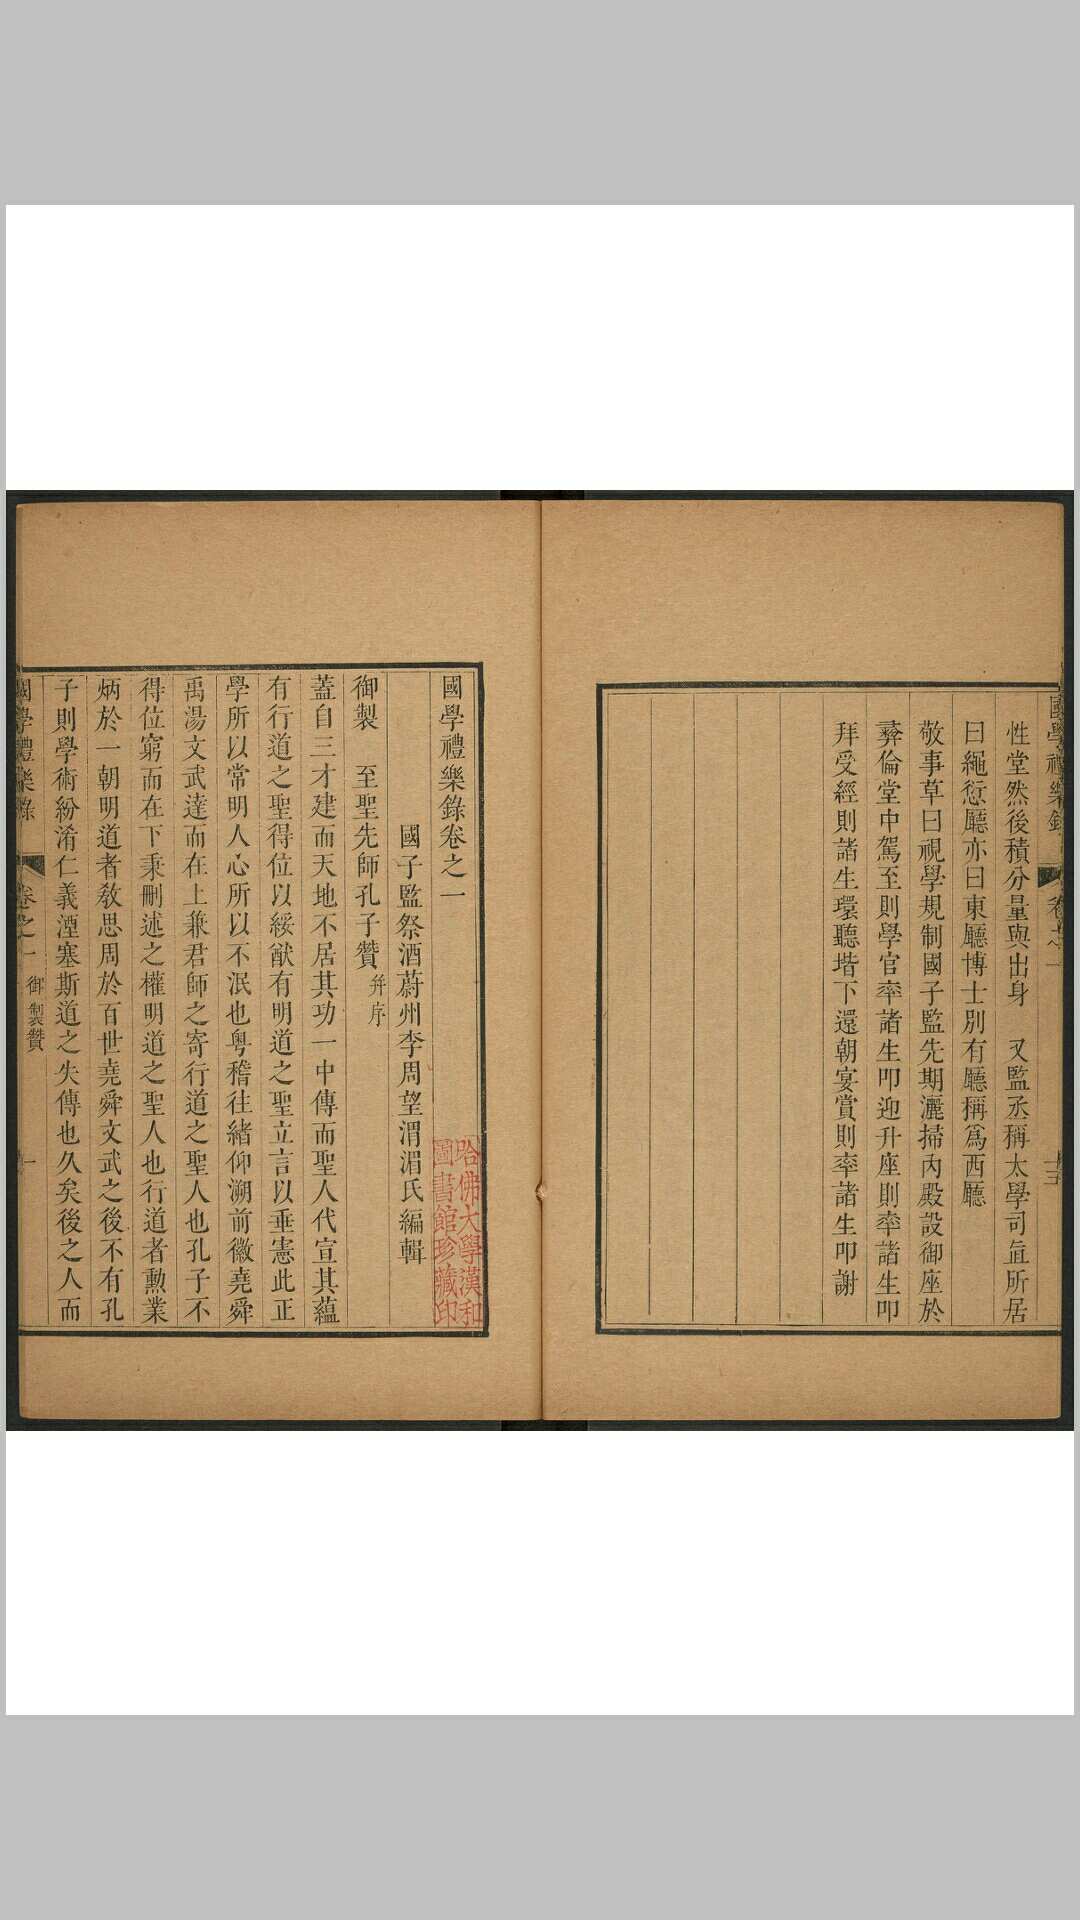 國學禮樂錄
卷之一
性堂然後積分量與出身　又監丞稱太學司直所居
曰繩愆廳亦曰東廳博士別有廳稱爲西廳
敬事草曰視學規制國子監先期灑掃內殿設御座於
彝倫堂中駕至則學官率諸生叩迎升座則率諸生叩
拜受經則諸生環聽堦下還朝宴賞則率諸生叩謝
國學禮樂錄卷之一
國子監祭酒蔚州李周望渭湄氏編輯
御製　至聖先師孔子贊并序
蓋自三才建而天地不居其功一中傳而聖人代宣其蘊
有行道之聖得位以綏猷有明道之聖立言以垂憲此正
學所以常明人心所以不泯也粤稽往緒仰溯前徽堯舜
禹湯文武達而在上兼君師之寄行道之聖人也孔子不
得位窮而在下秉刪述之權明道之聖人也行道者勲業
炳於一朝明道者教思周於百世堯舜文武之後不有孔
子則學術紛淆仁義湮塞斯道之失傳也久矣後之人而
國學禮樂錄
卷之一
御製贊
一
哈佛大學漢和
圖書館珍藏印